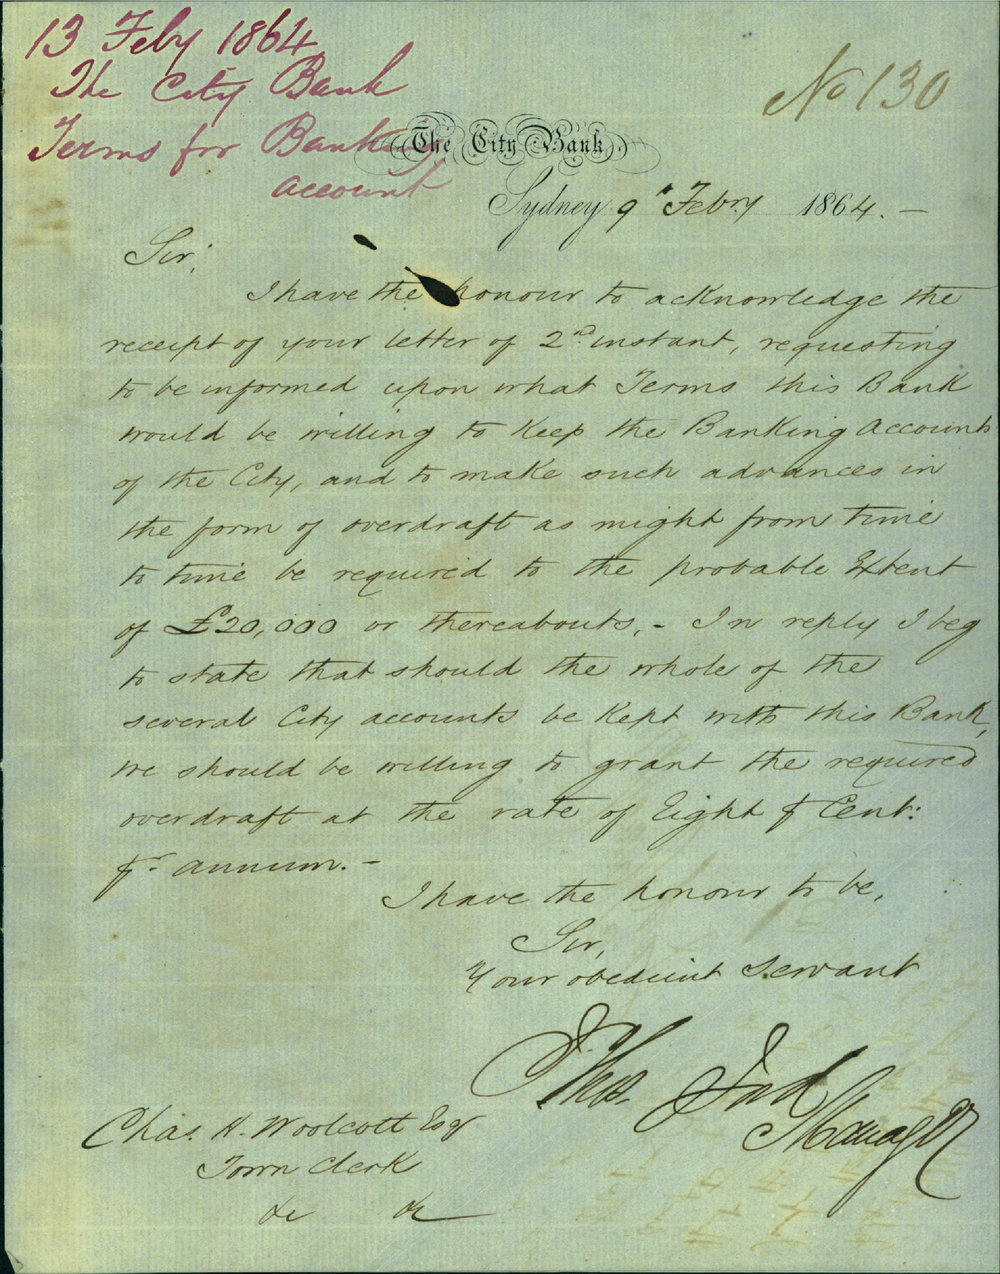 13 Feby 1864
The City Bank
Terms for Bank
account
No 130
The City Bank
Sydney 9th Febry 1864. –
Sir,
I have the honour to acknowledge the
receipt of your letter of 2nd instant, requesting
to be informed upon what Terms this Bank
would be willing to Keep the Banking Accounts
of the City, and to make such advances in
the form of overdraft as might from time
to time be required to the probable Extent
of £20,000 or thereabouts, – In reply I beg
to state that should the whole of the
several City accounts be Kept with this Bank,
we should be willing to grant the required
overdraft at the rate of Eight ⅌ Cent:
⅌r annum. –
I have the honour to be,
Sir,
Your obedient Servant
Thos.
Manager
Chas. H. Woolcott Esqr
Town Clerk
&c &c